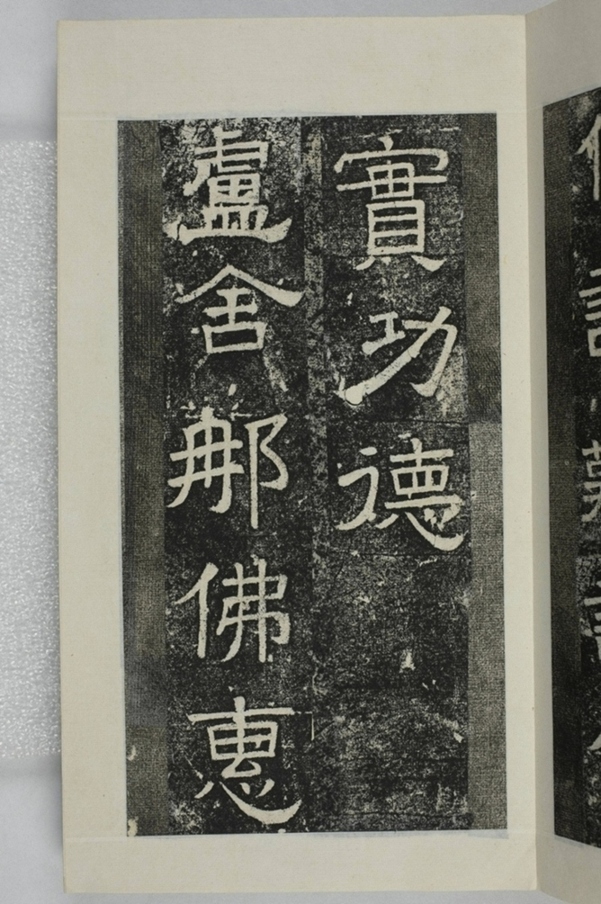 實功德
盧舍那佛惠